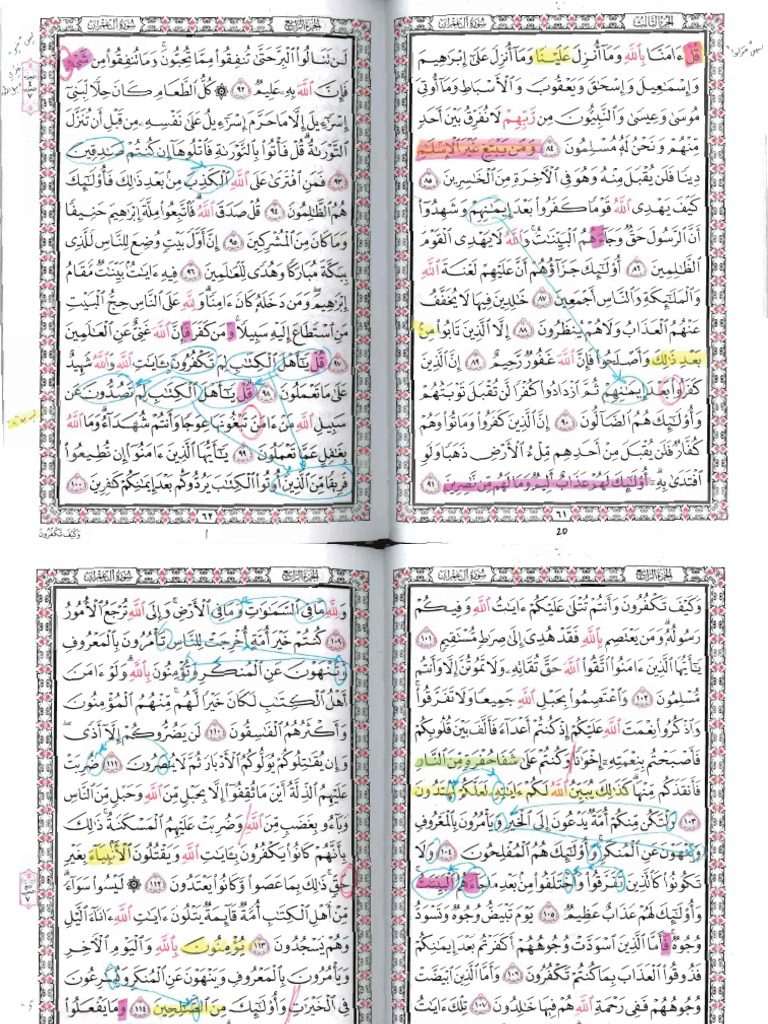 الجزء الثالث
سورة آل عمران
قُلْ ءَامَنَّا بِاللَّهِ وَمَا أُنزِلَ عَلَيْنَا وَمَا أُنزِلَ عَلَىٰ إِبْرَٰهِيمَ
وَإِسْمَٰعِيلَ وَإِسْحَٰقَ وَيَعْقُوبَ وَالْأَسْبَاطِ وَمَا أُوتِيَ
مُوسَىٰ وَعِيسَىٰ وَالنَّبِيُّونَ مِن رَّبِّهِمْ لَا نُفَرِّقُ بَيْنَ أَحَدٍ
مِّنْهُمْ وَنَحْنُ لَهُ مُسْلِمُونَ ٨٤ وَمَن يَبْتَغِ غَيْرَ الْإِسْلَٰمِ
دِينًا فَلَن يُقْبَلَ مِنْهُ وَهُوَ فِي الْآخِرَةِ مِنَ الْخَٰسِرِينَ ٨٥
كَيْفَ يَهْدِي اللَّهُ قَوْمًا كَفَرُوا بَعْدَ إِيمَٰنِهِمْ وَشَهِدُوا
أَنَّ الرَّسُولَ حَقٌّ وَجَاءَهُمُ الْبَيِّنَٰتُ وَاللَّهُ لَا يَهْدِي الْقَوْمَ
الظَّٰلِمِينَ ٨٦ أُولَٰئِكَ جَزَاؤُهُمْ أَنَّ عَلَيْهِمْ لَعْنَةَ اللَّهِ
وَالْمَلَٰئِكَةِ وَالنَّاسِ أَجْمَعِينَ ٨٧ خَٰلِدِينَ فِيهَا لَا يُخَفَّفُ
عَنْهُمُ الْعَذَابُ وَلَا هُمْ يُنظَرُونَ ٨٨ إِلَّا الَّذِينَ تَابُوا مِن
بَعْدِ ذَٰلِكَ وَأَصْلَحُوا فَإِنَّ اللَّهَ غَفُورٌ رَّحِيمٌ ٨٩ إِنَّ الَّذِينَ
كَفَرُوا بَعْدَ إِيمَٰنِهِمْ ثُمَّ ازْدَادُوا كُفْرًا لَّن تُقْبَلَ تَوْبَتُهُمْ
وَأُولَٰئِكَ هُمُ الضَّالُّونَ ٩٠ إِنَّ الَّذِينَ كَفَرُوا وَمَاتُوا وَهُمْ
كُفَّارٌ فَلَن يُقْبَلَ مِنْ أَحَدِهِم مِّلْءُ الْأَرْضِ ذَهَبًا وَلَوِ
افْتَدَىٰ بِهِ أُولَٰئِكَ لَهُمْ عَذَابٌ أَلِيمٌ وَمَا لَهُم مِّن نَّٰصِرِينَ ٩١
٦١
20
الجزء الرابع
سورة آل عمران
لَن تَنَالُوا الْبِرَّ حَتَّىٰ تُنفِقُوا مِمَّا تُحِبُّونَ وَمَا تُنفِقُوا مِن شَيْءٍ
فَإِنَّ اللَّهَ بِهِ عَلِيمٌ ٩٢ ۞ كُلُّ الطَّعَامِ كَانَ حِلًّا لِّبَنِي
إِسْرَٰءِيلَ إِلَّا مَا حَرَّمَ إِسْرَٰءِيلُ عَلَىٰ نَفْسِهِ مِن قَبْلِ أَن تُنَزَّلَ
التَّوْرَىٰةُ قُلْ فَأْتُوا بِالتَّوْرَىٰةِ فَاتْلُوهَا إِن كُنتُمْ صَٰدِقِينَ
٩٣ فَمَنِ افْتَرَىٰ عَلَى اللَّهِ الْكَذِبَ مِن بَعْدِ ذَٰلِكَ فَأُولَٰئِكَ
هُمُ الظَّٰلِمُونَ ٩٤ قُلْ صَدَقَ اللَّهُ فَاتَّبِعُوا مِلَّةَ إِبْرَٰهِيمَ حَنِيفًا
وَمَا كَانَ مِنَ الْمُشْرِكِينَ ٩٥ إِنَّ أَوَّلَ بَيْتٍ وُضِعَ لِلنَّاسِ لَلَّذِي
بِبَكَّةَ مُبَارَكًا وَهُدًى لِّلْعَٰلَمِينَ ٩٦ فِيهِ ءَايَٰتٌ بَيِّنَٰتٌ مَّقَامُ
إِبْرَٰهِيمَ وَمَن دَخَلَهُ كَانَ ءَامِنًا وَلِلَّهِ عَلَى النَّاسِ حِجُّ الْبَيْتِ
مَنِ اسْتَطَاعَ إِلَيْهِ سَبِيلًا وَمَن كَفَرَ فَإِنَّ اللَّهَ غَنِيٌّ عَنِ الْعَٰلَمِينَ
٩٧ قُلْ يَٰأَهْلَ الْكِتَٰبِ لِمَ تَكْفُرُونَ بِـَٔايَٰتِ اللَّهِ وَاللَّهُ شَهِيدٌ
عَلَىٰ مَا تَعْمَلُونَ ٩٨ قُلْ يَٰأَهْلَ الْكِتَٰبِ لِمَ تَصُدُّونَ عَن
سَبِيلِ اللَّهِ مَنْ ءَامَنَ تَبْغُونَهَا عِوَجًا وَأَنتُمْ شُهَدَاءُ وَمَا اللَّهُ
بِغَٰفِلٍ عَمَّا تَعْمَلُونَ ٩٩ يَٰأَيُّهَا الَّذِينَ ءَامَنُوا إِن تُطِيعُوا
فَرِيقًا مِّنَ الَّذِينَ أُوتُوا الْكِتَٰبَ يَرُدُّوكُم بَعْدَ إِيمَٰنِكُمْ كَٰفِرِينَ ١٠٠
٦٢
وَكَيْفَ تَكْفُرُونَ
1
الجزء الرابع
سورة آل عمران
وَكَيْفَ تَكْفُرُونَ وَأَنتُمْ تُتْلَىٰ عَلَيْكُمْ ءَايَٰتُ اللَّهِ وَفِيكُمْ
رَسُولُهُ وَمَن يَعْتَصِم بِاللَّهِ فَقَدْ هُدِيَ إِلَىٰ صِرَٰطٍ مُّسْتَقِيمٍ ١٠١
يَٰأَيُّهَا الَّذِينَ ءَامَنُوا اتَّقُوا اللَّهَ حَقَّ تُقَاتِهِ وَلَا تَمُوتُنَّ إِلَّا وَأَنتُم
مُّسْلِمُونَ ١٠٢ وَاعْتَصِمُوا بِحَبْلِ اللَّهِ جَمِيعًا وَلَا تَفَرَّقُوا
وَاذْكُرُوا نِعْمَتَ اللَّهِ عَلَيْكُمْ إِذْ كُنتُمْ أَعْدَاءً فَأَلَّفَ بَيْنَ قُلُوبِكُمْ
فَأَصْبَحْتُم بِنِعْمَتِهِ إِخْوَٰنًا وَكُنتُمْ عَلَىٰ شَفَا حُفْرَةٍ مِّنَ النَّارِ
فَأَنقَذَكُم مِّنْهَا كَذَٰلِكَ يُبَيِّنُ اللَّهُ لَكُمْ ءَايَٰتِهِ لَعَلَّكُمْ تَهْتَدُونَ
١٠٣ وَلْتَكُن مِّنكُمْ أُمَّةٌ يَدْعُونَ إِلَى الْخَيْرِ وَيَأْمُرُونَ بِالْمَعْرُوفِ
وَيَنْهَوْنَ عَنِ الْمُنكَرِ وَأُولَٰئِكَ هُمُ الْمُفْلِحُونَ ١٠٤ وَلَا
تَكُونُوا كَالَّذِينَ تَفَرَّقُوا وَاخْتَلَفُوا مِن بَعْدِ مَا جَاءَهُمُ الْبَيِّنَٰتُ
وَأُولَٰئِكَ لَهُمْ عَذَابٌ عَظِيمٌ ١٠٥ يَوْمَ تَبْيَضُّ وُجُوهٌ وَتَسْوَدُّ
وُجُوهٌ فَأَمَّا الَّذِينَ اسْوَدَّتْ وُجُوهُهُمْ أَكَفَرْتُم بَعْدَ إِيمَٰنِكُمْ
فَذُوقُوا الْعَذَابَ بِمَا كُنتُمْ تَكْفُرُونَ ١٠٦ وَأَمَّا الَّذِينَ ابْيَضَّتْ
وُجُوهُهُمْ فَفِي رَحْمَةِ اللَّهِ هُمْ فِيهَا خَٰلِدُونَ ١٠٧ تِلْكَ ءَايَٰتُ
الجزء الرابع
سورة آل عمران
وَلِلَّهِ مَا فِي السَّمَٰوَٰتِ وَمَا فِي الْأَرْضِ وَإِلَى اللَّهِ تُرْجَعُ الْأُمُورُ
١٠٩ كُنتُمْ خَيْرَ أُمَّةٍ أُخْرِجَتْ لِلنَّاسِ تَأْمُرُونَ بِالْمَعْرُوفِ
وَتَنْهَوْنَ عَنِ الْمُنكَرِ وَتُؤْمِنُونَ بِاللَّهِ وَلَوْ ءَامَنَ
أَهْلُ الْكِتَٰبِ لَكَانَ خَيْرًا لَّهُم مِّنْهُمُ الْمُؤْمِنُونَ
وَأَكْثَرُهُمُ الْفَٰسِقُونَ ١١٠ لَن يَضُرُّوكُمْ إِلَّا أَذًى
وَإِن يُقَٰتِلُوكُمْ يُوَلُّوكُمُ الْأَدْبَارَ ثُمَّ لَا يُنصَرُونَ ١١١ ضُرِبَتْ
عَلَيْهِمُ الذِّلَّةُ أَيْنَ مَا ثُقِفُوا إِلَّا بِحَبْلٍ مِّنَ اللَّهِ وَحَبْلٍ مِّنَ النَّاسِ
وَبَاءُو بِغَضَبٍ مِّنَ اللَّهِ وَضُرِبَتْ عَلَيْهِمُ الْمَسْكَنَةُ ذَٰلِكَ
بِأَنَّهُمْ كَانُوا يَكْفُرُونَ بِـَٔايَٰتِ اللَّهِ وَيَقْتُلُونَ الْأَنبِيَاءَ بِغَيْرِ
حَقٍّ ذَٰلِكَ بِمَا عَصَوا وَّكَانُوا يَعْتَدُونَ ١١٢ ۞ لَيْسُوا سَوَاءً
مِّنْ أَهْلِ الْكِتَٰبِ أُمَّةٌ قَائِمَةٌ يَتْلُونَ ءَايَٰتِ اللَّهِ ءَانَاءَ اللَّيْلِ
وَهُمْ يَسْجُدُونَ ١١٣ يُؤْمِنُونَ بِاللَّهِ وَالْيَوْمِ الْآخِرِ
وَيَأْمُرُونَ بِالْمَعْرُوفِ وَيَنْهَوْنَ عَنِ الْمُنكَرِ وَيُسَٰرِعُونَ
فِي الْخَيْرَٰتِ وَأُولَٰئِكَ مِنَ الصَّٰلِحِينَ ١١٤ وَمَا يَفْعَلُوا